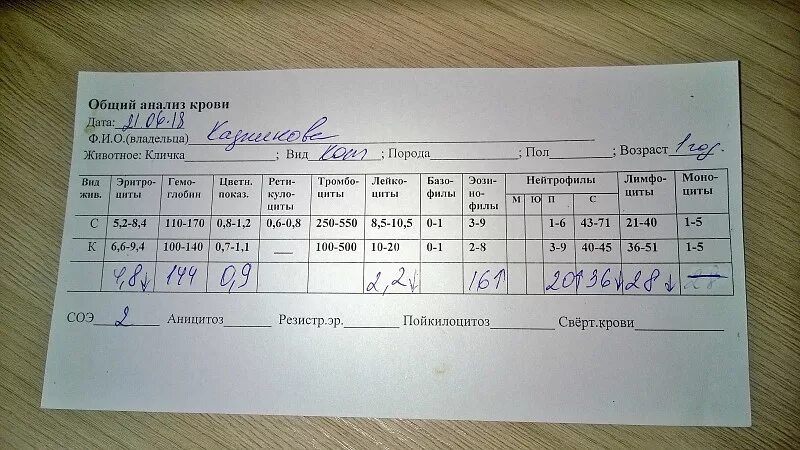 Общий анализ крови
Дата: 21.06.18
Ф.И.О.(владельца)
Животное: Кличка ; Вид Кот ; Порода ; Пол ; Возраст 1 год.
Вид жив. Эритро-циты Гемо-глобин Цветн. показ. Рети-кулоциты Тромбо-циты Лейко-циты Базо-филы Эози-нофилы Нейтрофилы М Ю П С Лимфо-циты Моно-циты
С 5,2-8,4 110-170 0,8-1,2 0,6-0,8 250-550 8,5-10,5 0-1 3-9 1-6 43-71 21-40 1-5
К 6,6-9,4 100-140 0,7-1,1 — 100-500 10-20 0-1 2-8 3-9 40-45 36-51 1-5
4,8↓ 144 0,9 2,2↓ 16↑ 20↑ 36↓ 28↓
СОЭ 2 Аницитоз Резистр.эр. Пойкилоцитоз Свёрт.крови